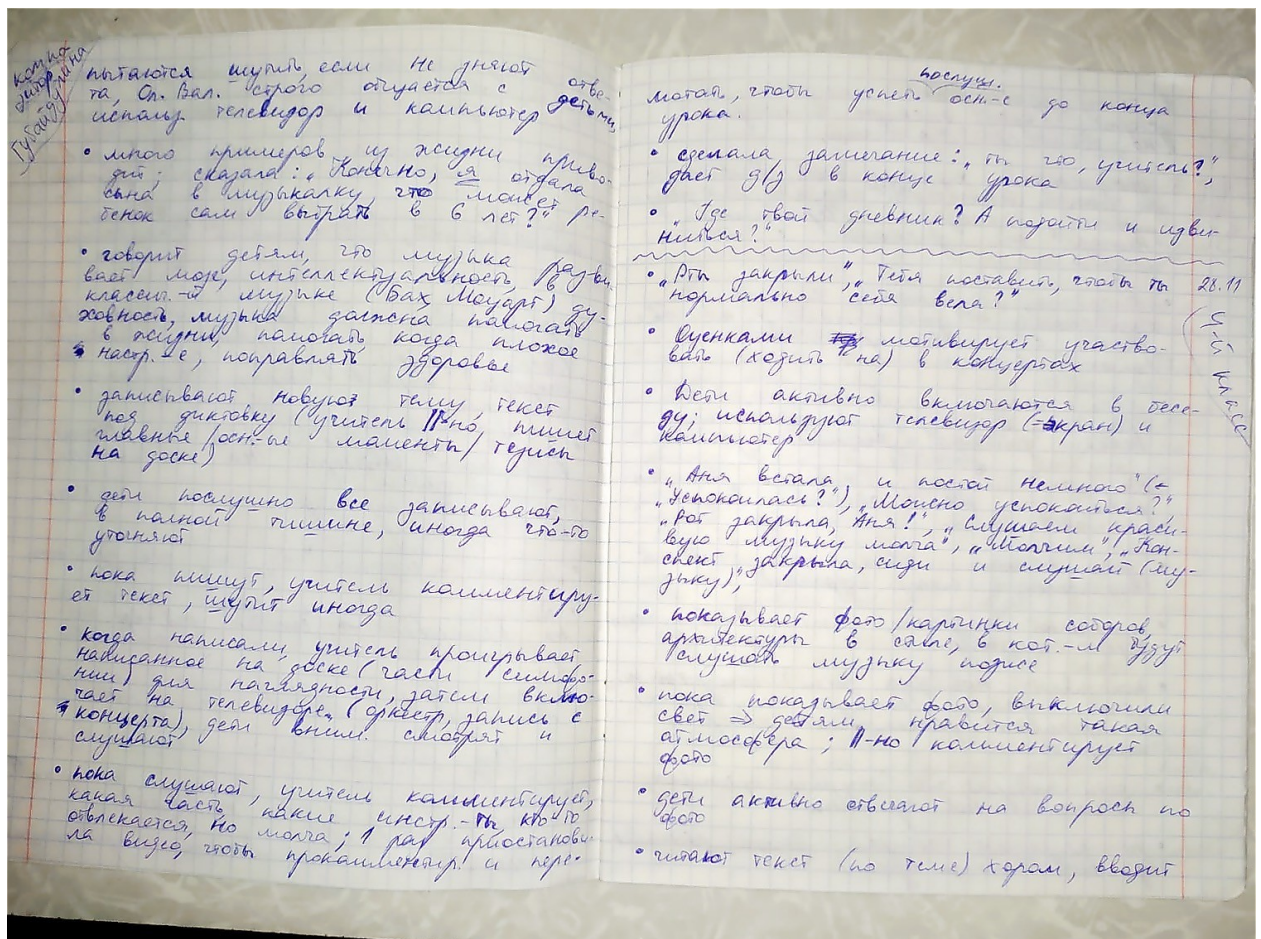 компо
зитор
Губайдулина
пытаются шутить, если не знают отве-
та, Ол. Вал. строго общается с детьми,
использ. телевизор и компьютер
• много примеров из жизни приво-
дит; сказала: „Конечно, я отдала
сына в музыкалку, что может ре-
бёнок сам выбрать в 6 лет?"
• говорит детям, что музыка разви-
вает мозг, интеллектуальность, в
классич.-й музыке (Бах, Моцарт) ду-
ховность, музыка должна помогать
в жизни, помогать, когда плохое
настр.-е, поправлять здоровье
• записывают новую тему, текст
под диктовку (учитель II-но пишет
главные/осн.-ые моменты/тезисы
на доске)
• дети послушно все записывают,
в полной тишине, иногда что-то
уточняют
• пока пишут, учитель комментиру-
ет текст, шутит иногда
• когда написали, учитель проигрывает
написанное на доске (части симфо-
нии) для наглядности, затем вклю-
чает на телевизоре (оркестр, запись с
концерта), дети вним. смотрят и
слушают
• пока слушают, учитель комментирует,
какая часть, какие инстр.-ты, кто-то
отвлекается, но молча; 1 раз приостанови-
ла видео, чтобы прокомментир. и пере-
послуш.
мотать, чтобы успеть осн.-е до конца
урока.
• сделала замечание: „ты что, учитель?",
дает д/з в конце урока
• „Где твой дневник? А подойти и изви-
ниться?"
• „Рты закрыли", „Тебя поставить, чтобы ты
нормально себя вела?"
28.11
• Оценками мотивирует участво-
вать (ходить на) в концертах
• Дети активно включаются в бесе-
ду; используют телевизор (=экран) и
компьютер
• „Аня встала, и постой немного" (←
„Успокоилась?"), „Можно успокоиться?",
„Рот закрыла, Аня!", „Слушаем краси-
вую музыку молча", „Молчим", „Кон-
спект закрыла, сиди и слушай (му-
зыку)"
• показывает фото/картинки соборов,
архитектуры в стиле, в кот.-м будут
слушать музыку позже
• пока показывает фото, выключили
свет ⇒ детям нравится такая
атмосфера; II-но комментирует
фото
• дети активно отвечают на вопросы по
фото
• читают текст (по теме) хором, вводит